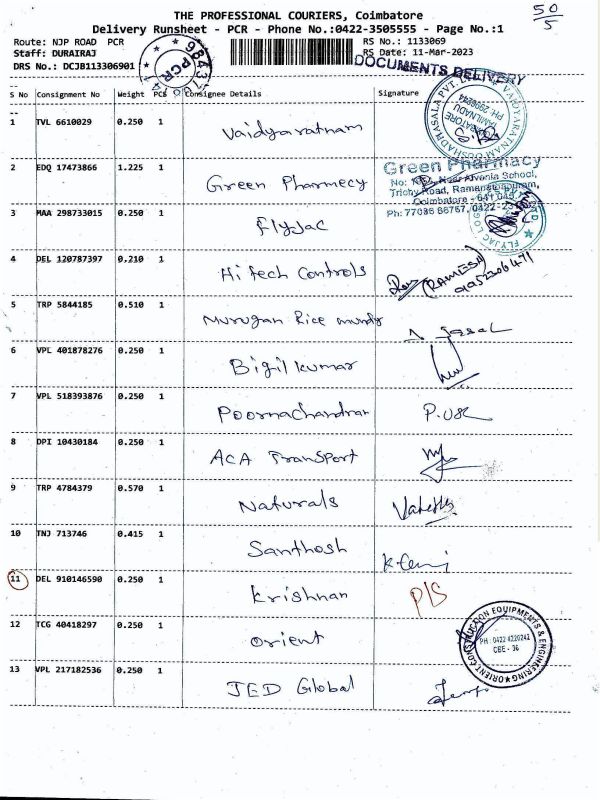 50/5
THE PROFESSIONAL COURIERS, Coimbatore
Delivery Runsheet - PCR - Phone No.:0422-3505555 - Page No.:1
Route: NJP ROAD PCR RS No.: 1133069
Staff: DURAIRAJ RS Date: 11-Mar-2023
DRS No.: DCJB113306901
PCR
DOCUMENTS DELIVERY
S No Consignment No Weight PCS Consignee Details Signature
1 TVL 6610029 0.250 1 Vaidyaratnam
PH: 2999244
TAMILNADU
2 EDQ 17473866 1.225 1 Green Pharmecy
Green Pharmacy
Alvenia School,
Trichy Road, Ramanathapuram,
Coimbatore - 641 045.
Ph: 77086 66767, 0422-
3 MAA 298733015 0.250 1 Flyjac
4 DEL 120787397 0.210 1 Hi tech Controls (RAMESH)
5 TRP 5844185 0.510 1 Murugan Rice mundy
6 VPL 401878276 0.250 1 Bigil kumar
7 VPL 518393876 0.250 1 Poornachandran
8 DPI 10430184 0.250 1 ACA Transport
9 TRP 4784379 0.570 1 Naturals
10 TNJ 713746 0.415 1 Santhosh
11 DEL 910146590 0.250 1 Krishnan P/S
12 TCG 40418297 0.250 1 Orient
ORIENT CONSTRUCTION EQUIPMENTS & ENGINEERING
PH: 0422 4220242
CBE - 36
13 VPL 217182536 0.250 1 JED Global